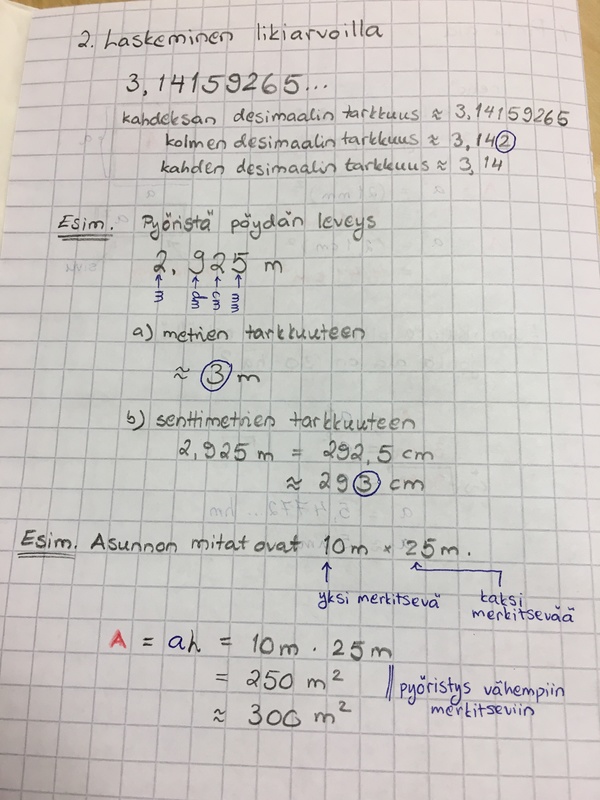 2. Laskeminen likiarvoilla
3,14159265...
kahdeksan desimaalin tarkkuus ≈ 3,14159265
kolmen desimaalin tarkkuus ≈ 3,142
kahden desimaalin tarkkuus ≈ 3,14
Esim. Pyöristä pöydän leveys
2,925 m
m dm cm mm
a) metrien tarkkuuteen
≈ 3 m
b) senttimetrien tarkkuuteen
2,925 m = 292,5 cm
≈ 293 cm
Esim. Asunnon mitat ovat 10m × 25m.
yksi merkitsevä
kaksi merkitsevää
A = ah = 10m · 25m
= 250 m²
≈ 300 m²
pyöristys vähempiin
merkitseviin